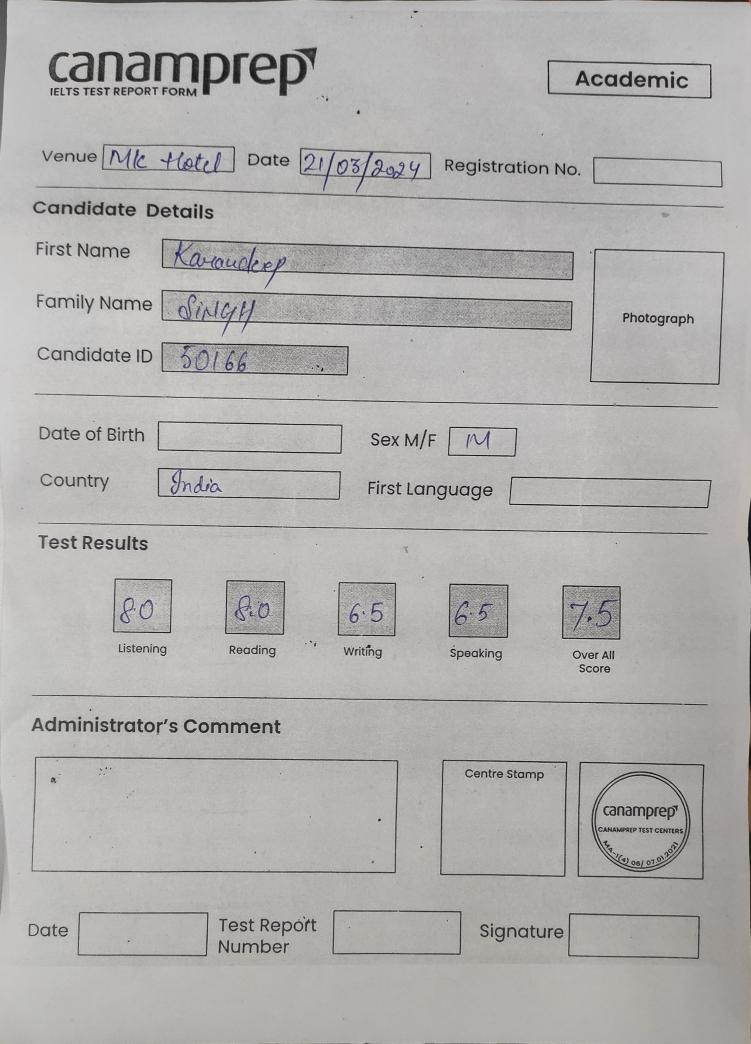 canamprep
IELTS TEST REPORT FORM
Academic
Venue Mk Hotel Date 21/03/2024 Registration No.
Candidate Details
First Name Karandeep
Family Name SINGH
Photograph
Candidate ID 50166
Date of Birth Sex M/F M
Country India First Language
Test Results
8.0 8.0 6.5 6.5 7.5
Listening Reading Writing Speaking Over All Score
Administrator's Comment
Centre Stamp
canamprep
CANAMPREP TEST CENTERS
MA-1(4) 06/ 07.01.2021
Date Test Report Number Signature